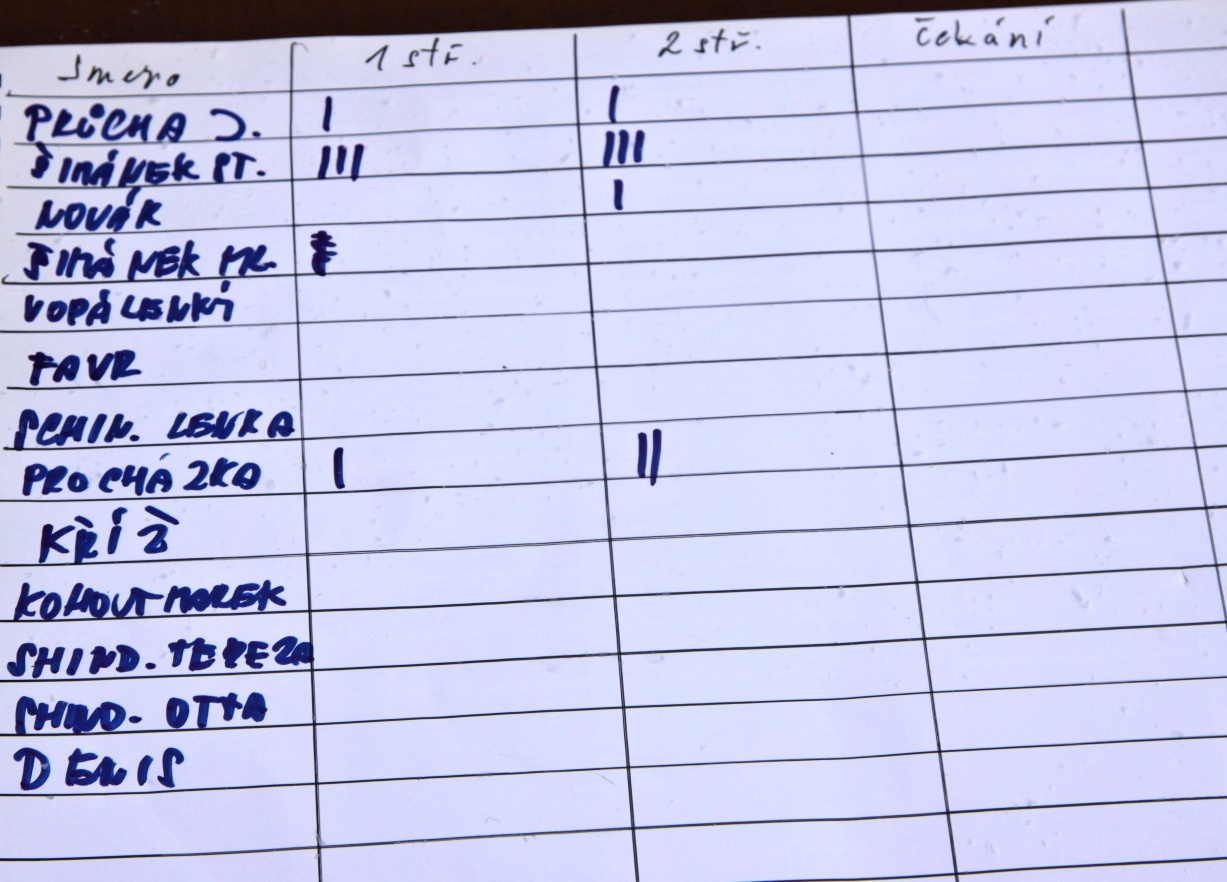 Jmeno 1 stř. 2 stř. Čekání
PRŮCHA J. I I
ŠIMÁNEK PT. III III
NOVÁK I
ŠIMÁNEK MR.
VOPÁLENKÝ
FAVR
SCHIN. LENKA
PROCHÁZKA I II
KŘÍŽ
KOHOUT MAREK
SHIND. TEREZA
SHIND. OTTA
DENIS